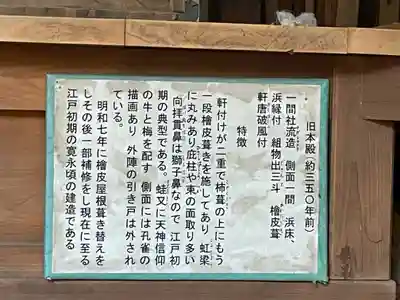 旧本殿(約三五〇年前)
一間社流造 側面一間 浜床、
浜縁付 組物出三斗 檜皮葺
軒唐破風付
特徴
軒付けが二重で柿葺の上にもう
一段檜皮葺きを施してあり 虹梁
に丸みあり庇柱や束の面取り多い
向拝貫鼻は獅子鼻なので 江戸初
期の典型である。蛙又に天神信仰
の牛と梅を配す 側面には孔雀の
描画あり 外陣の引き戸は外され
ている。
明和七年に檜皮屋根葺き替えを
しその後一部補修をし現在に至る
江戸初期の寛永頃の建造である